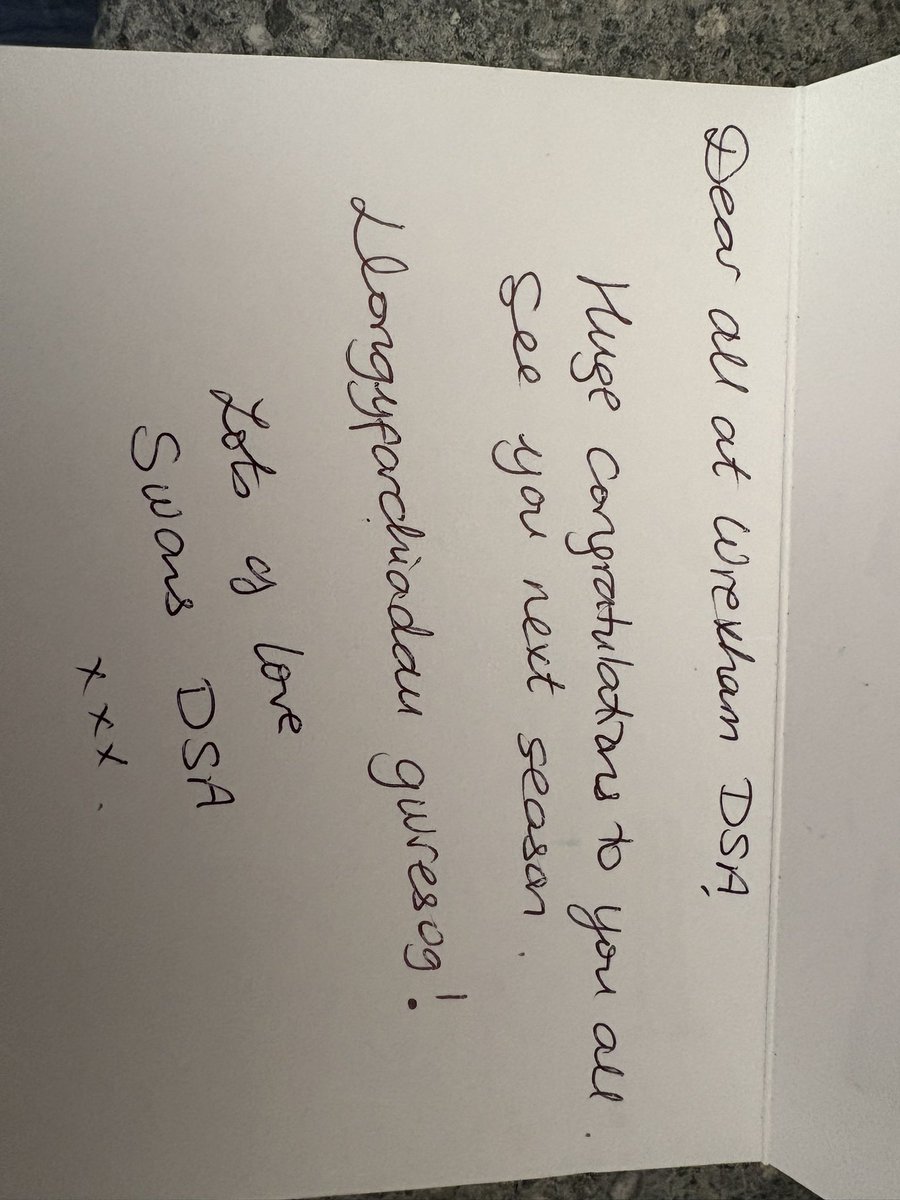 Dear all at Wrexham DSA,
Huge congratulations to you all.
See you next season.
Llongyfarchiadau gwresog!
Lots of love
Swans DSA
x x x.